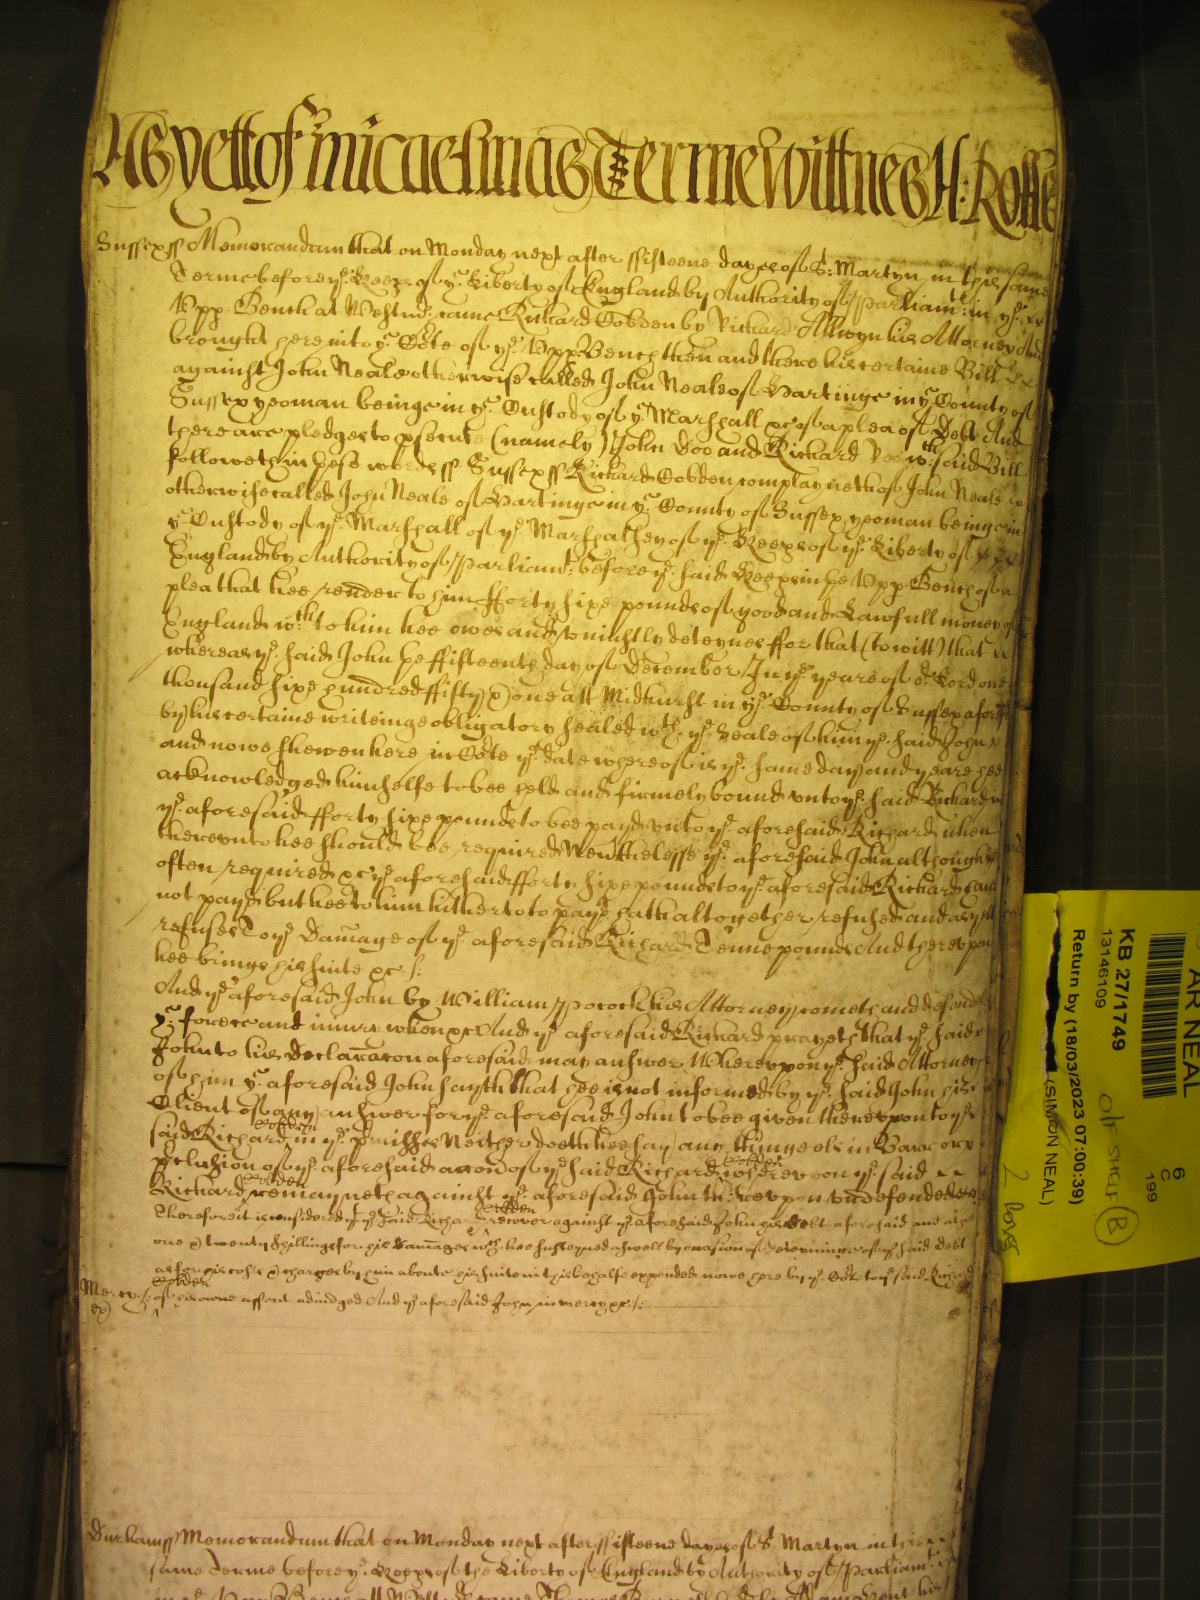 As yett of Michaelmas Terme Wittnes H: Rolle
Sussex ss Memorandum that on Monday next after ffifteene dayes of S: Martyn in this same
Terme before ye Keeprs of ye Liberty of England by Authority of Parliamt: in ye
Vpp Bench at Westmr: came Richard Cobden by Richard Allwyn his Attorney And
brought here into ye Cote of ye Vpp: Bench then and there his certaine Bill
against John Neale otherwise called John Neale of Hartinge in ye County of
Sussex yeoman beinge in ye Custody of ye Marshall &c of a plea of Debt And
there are pledges to psecute (namely) John Doo and Richard Roo wch: said Bill
followeth in these words ss Sussex ss Richard Cobden complayneth of John Neale
otherwise called John Neale of Hartinge in ye County of Sussex yeoman beinge in
ye Custody of ye Marshall of ye Marshalsey of ye Keeprs of ye Liberty of
England by Authority of Parliamt: before ye said Keeprs in the Vpp: Bench of a
plea that hee render to him fforty sixe pounds of good and Lawfull money of
England wch to him hee owes and vniustly deteynes ffor that (to witt) that
whereas ye said John the ffifteenth day of December In ye yeare of or Lord one
thousand sixe hundred ffifty & one att Midhurst in ye County of Sussex aforesd
by his certaine writeinge obligatory sealed wth ye Seale of him ye said John
and nowe shewen here in Cote ye date whereof is ye same day and yeare hee
acknowledged himselfe to bee held and firmely bound vnto ye said Richard in
ye aforesaid fforty sixe pounds to bee payd vnto ye aforesaid Richard when
therevnto hee should bee required Neverthelesse ye aforesaid John although
often required &c ye aforesaid fforty sixe pounds to ye aforesaid Richard hath
not payd but hee to him hitherto to pay hath altogether refused and as yett
refuses To ye Damage of ye aforesaid Richard Tenne pounds And therevpon
hee brings his suite &c:/:
And ye aforesaid John by William Pocock his Attorney cometh and defends
ye force and iniury when &c And ye aforesaid Richard prayeth that ye said
John to his declaracon aforesaid may answer Wherevpon ye said Attorney
of him ye aforesaid John sayth that hee is not informed by ye said John his
Client of any answer for ye aforesaid John to bee given therevpon to ye
said Richard Cobden in ye pmisses Neither doeth hee say any thinge els in Barr or
pclusion of ye aforesaid accon of ye said Richard Cobden wherevpon ye said
Richard Cobden remayneth against ye aforesaid John therevpon vndefended
Therefore it is considered yt ye said Richard Cobden recover against ye aforesaid John his debt aforesaid and alsoe
one & twenty shillings for his damages wch hee susteyned aswell by occasion of deteyninge of ye said debt
as for his costs & charges by him aboute his suite in this behalfe expended nowe here by ye Cote to ye said Richard
Cobden
Mercy:/: of his owne assent adiudged And ye aforesaid John in mercy &c:/:
Durham ss Memorandum that on Monday next after ffifteene dayes of S: Martyn in this
same Terme before ye Keeprs of the Liberty of England by Authority of Parliamt:
AR NEAL
KB 27/1749
13146109
Return by (18/03/2023 07:00:39)
(SIMON NEAL)
6
C
199
B